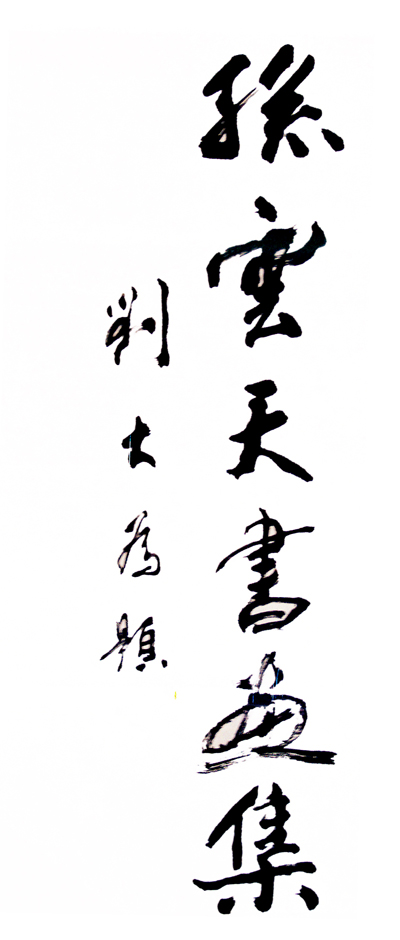 孫雲天書画集
劉大為題